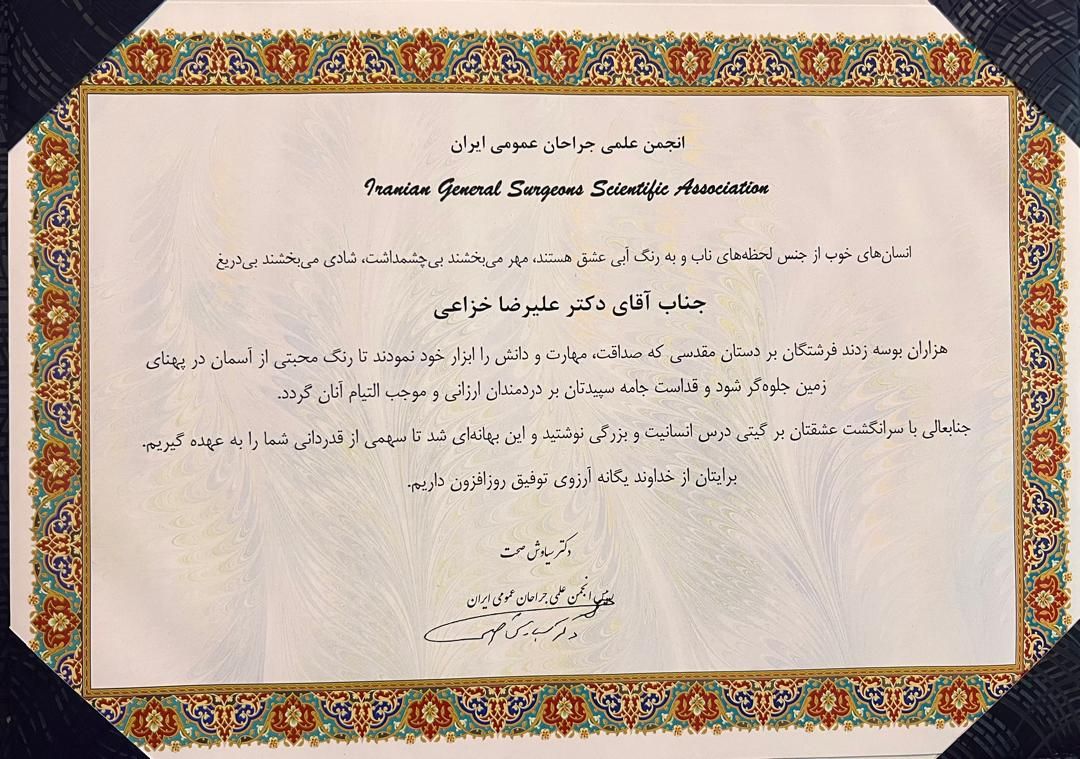 انجمن علمی جراحان عمومی ایران
Iranian General Surgeons Scientific Association
انسان‌های خوب از جنس لحظه‌های ناب و به رنگ آبی عشق هستند، مهر می‌بخشند بی‌چشمداشت، شادی می‌بخشند بی‌دریغ
جناب آقای دکتر علیرضا خزاعی
هزاران بوسه زدند فرشتگان بر دستان مقدسی که صداقت، مهارت و دانش را ابزار خود نمودند تا رنگ محبتی از آسمان در پهنای
زمین جلوه‌گر شود و قداست جامه سپیدتان بر دردمندان ارزانی و موجب التیام آنان گردد.
جنابعالی با سرانگشت عشقتان بر گیتی درس انسانیت و بزرگی نوشتید و این بهانه‌ای شد تا سهمی از قدردانی شما را به عهده گیریم.
برایتان از خداوند یگانه آرزوی توفیق روزافزون داریم.
دکتر سیاوش صحت
رییس انجمن علمی جراحان عمومی ایران